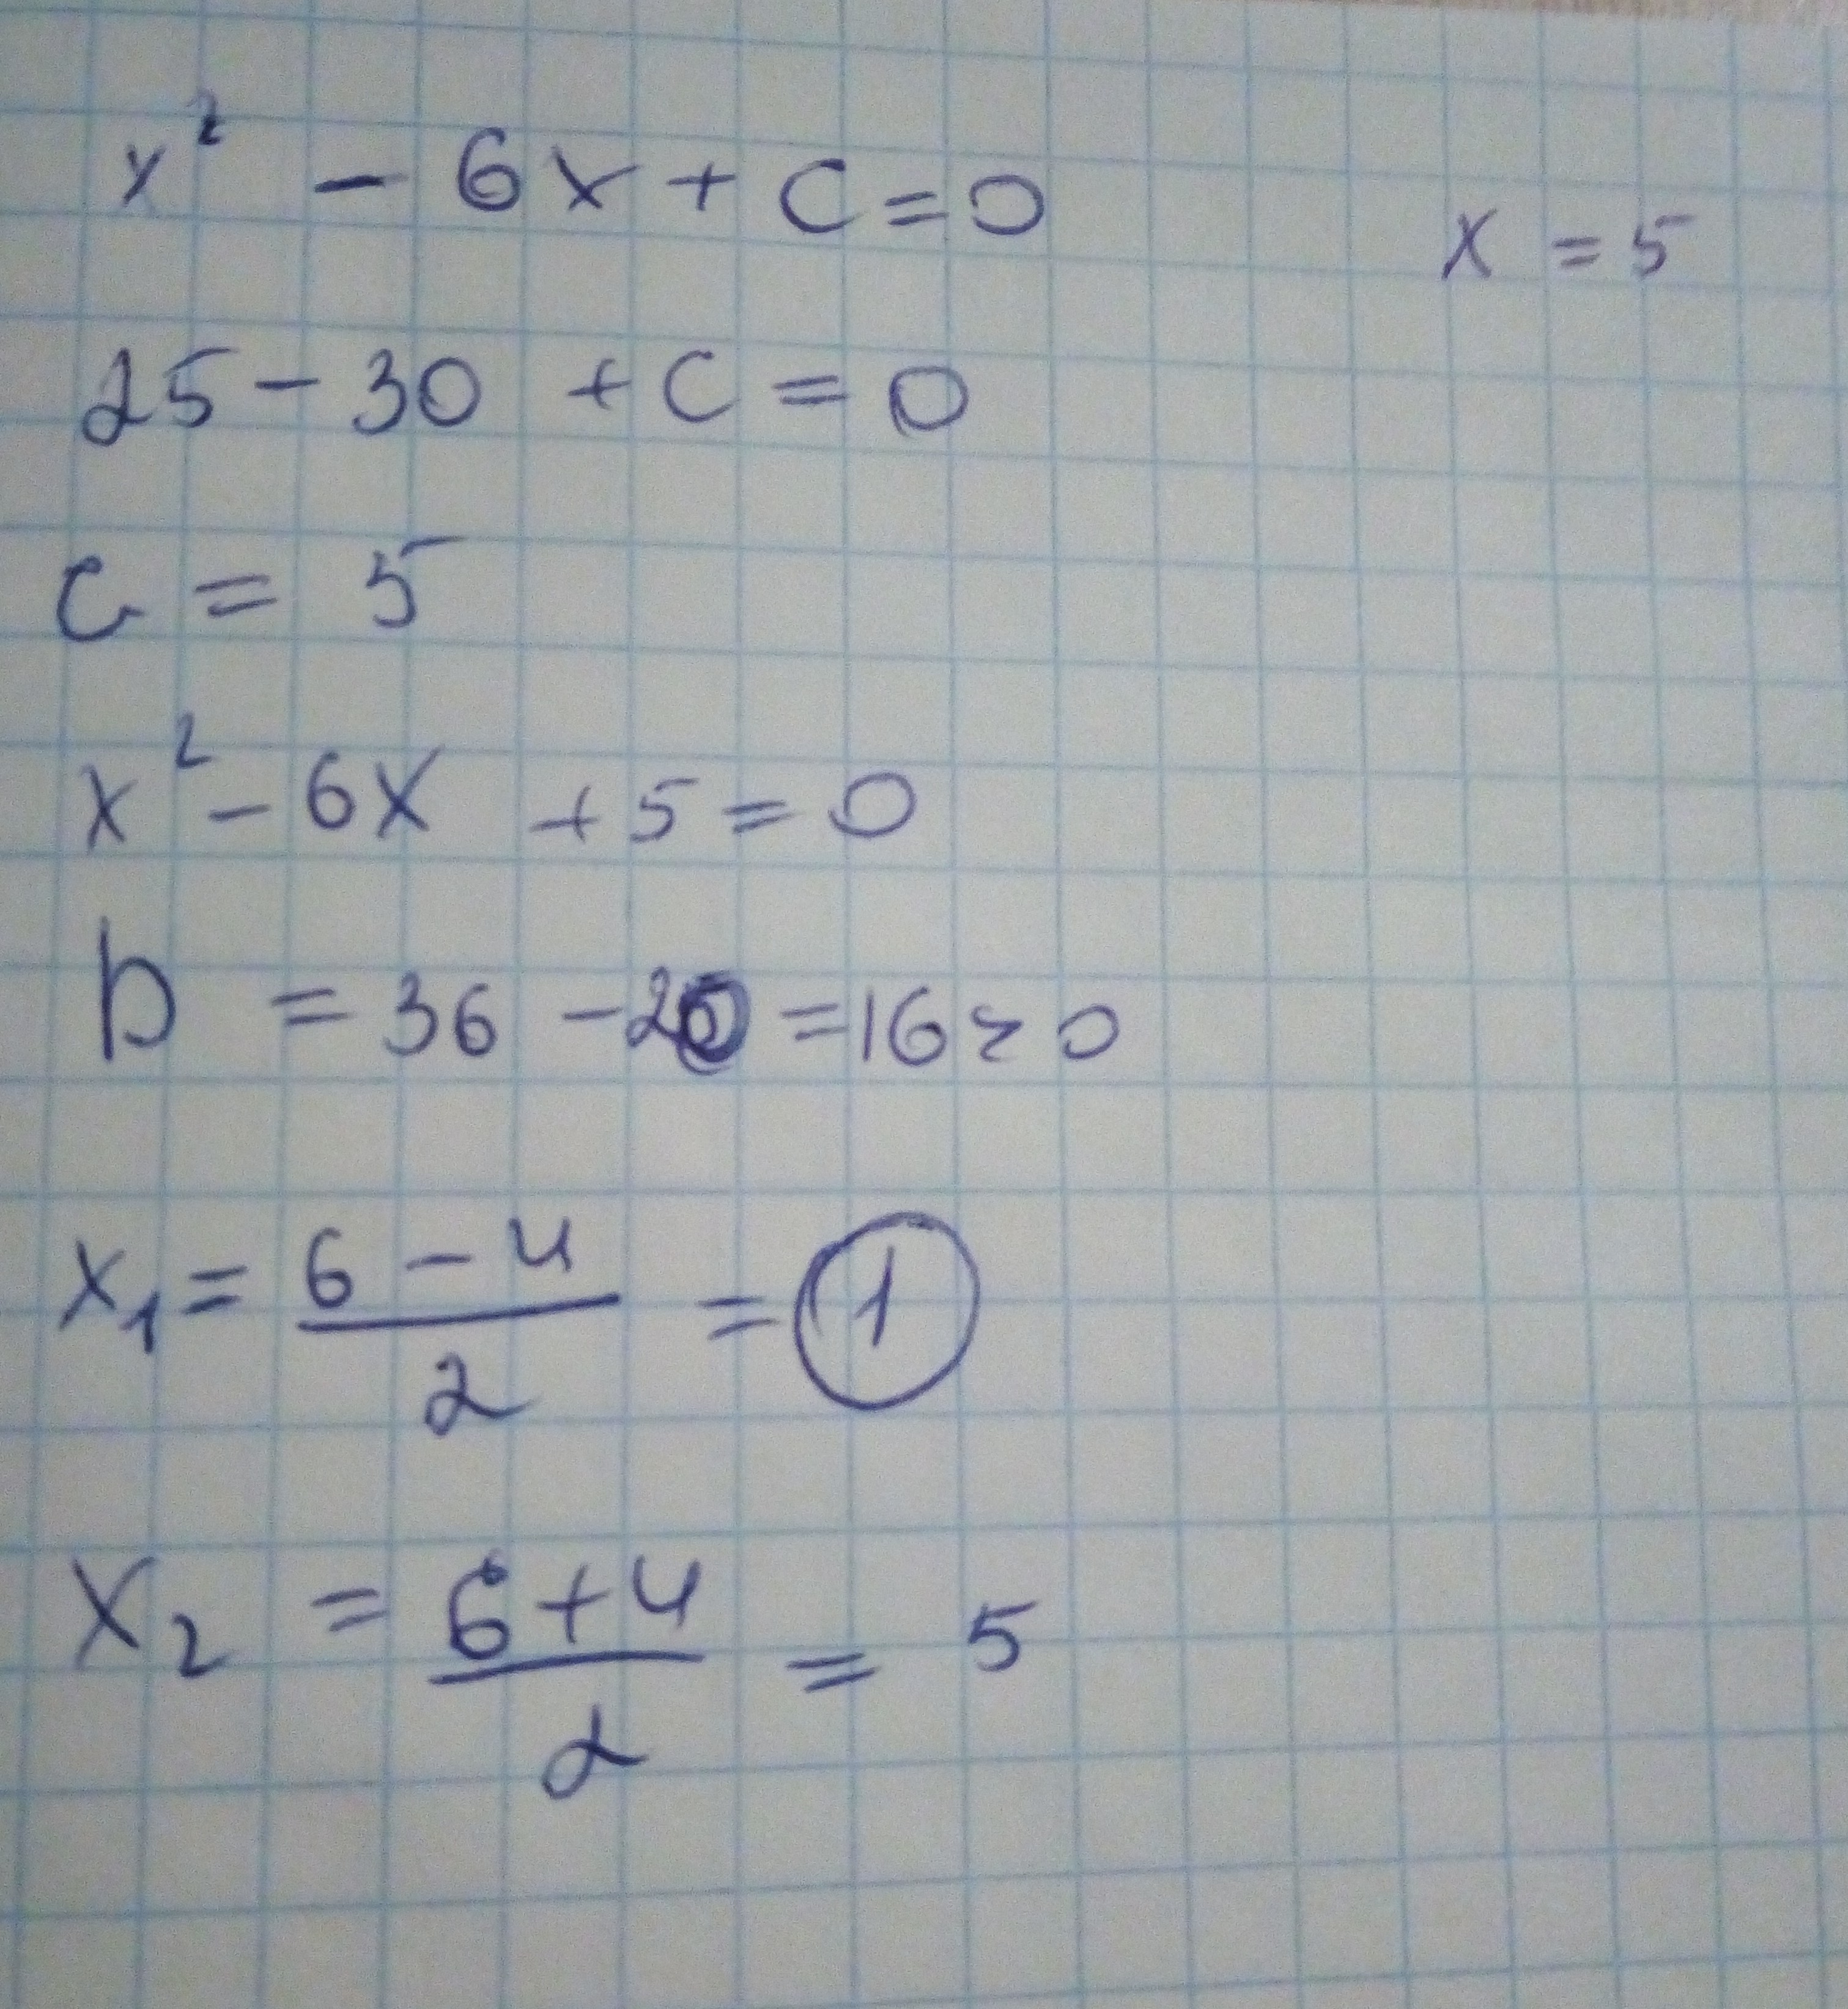 x² - 6x + c = 0
x = 5
25 - 30 + c = 0
c = 5
x² - 6x + 5 = 0
D = 36 - 20 = 16 > 0
x₁ = (6 - 4)/2 = 1
x₂ = (6 + 4)/2 = 5